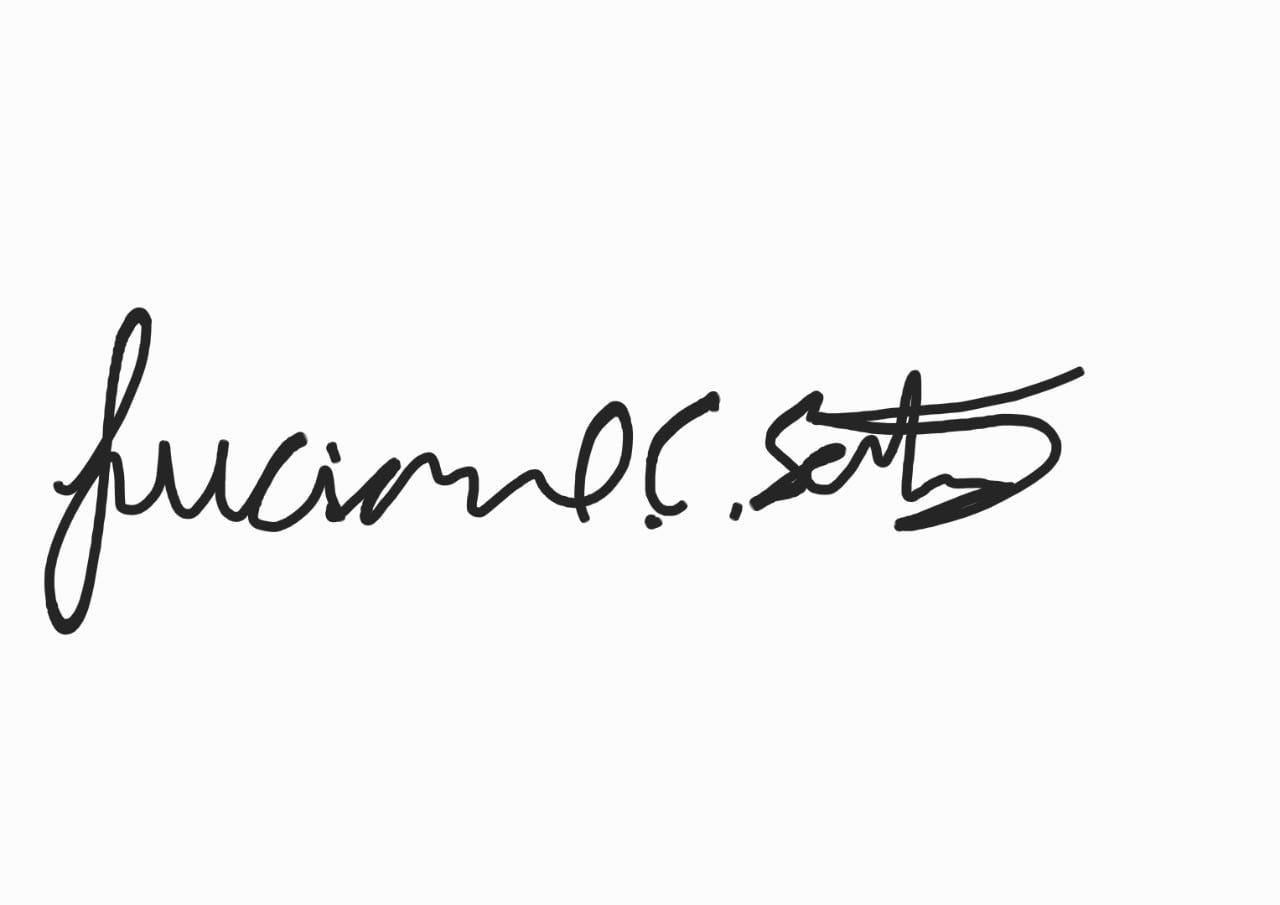 Luciano P. C. Santos